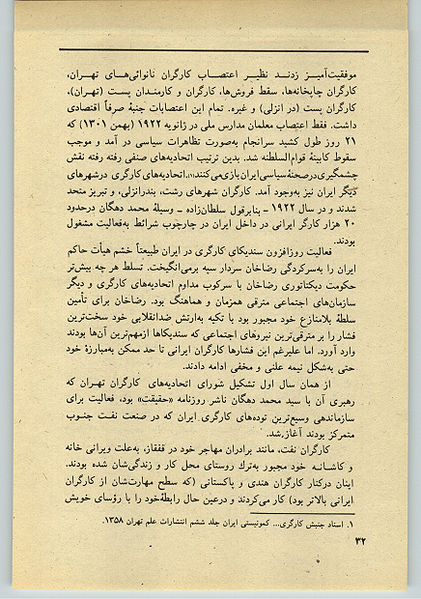 موفقیت‌آمیز زدند نظیر اعتصاب کارگران نانوائی‌های تهران،
کارگران چاپخانه‌ها، سقط فروش‌ها، کارگران و کارمندان پست (تهران)،
کارگران پست (در انزلی) و غیره. تمام این اعتصابات جنبهٔ صرفاً اقتصادی
داشت. فقط اعتصاب معلمان مدارس ملی در ژانویه ۱۹۲۲ (بهمن ۱۳۰۱) که
۲۱ روز طول کشید سرانجام به‌صورت تظاهرات سیاسی در آمد و موجب
سقوط کابینهٔ قوام‌السلطنه شد. بدین ترتیب اتحادیه‌های صنفی رفته رفته نقش
چشمگیری در صحنهٔ سیاسی ایران بازی می‌کنند(۱). اتحادیه‌های کارگری در شهرهای
دیگر ایران نیز به‌وجود آمد. کارگران شهرهای رشت، بندرانزلی، و تبریز متحد
شدند و در سال ۱۹۲۲ - بنابرقول سلطان‌زاده - وسیلهٔ محمد دهگان درحدود
۲۰ هزار کارگر ایرانی در داخل ایران در چارچوب شرائط به‌فعالیت مشغول
بودند.
فعالیت روزافزون سندیکای کارگری در ایران طبیعتاً خشم هیأت حاکم
ایران را به‌سرکردگی رضاخان سردار سپه برمی‌انگیخت. تسلط هر چه بیش‌تر
حکومت دیکتاتوری رضاخان با سرکوب مداوم اتحادیه‌های کارگری و دیگر
سازمان‌های اجتماعی مترقی همزمان و هماهنگ بود. رضاخان برای تأمین
سلطهٔ بلامنازع خود مجبور بود با تکیه به‌ارتش ضدانقلابی خود سخت‌ترین
فشار را بر مترقی‌ترین نیروهای اجتماعی که سندیکاها ازمهم‌ترین آن‌ها بودند
وارد آورد. اما علیرغم این فشارها کارگران ایرانی تا حد ممکن به‌مبارزهٔ خود
حتی به‌شکل نیمه علنی و مخفی ادامه دادند.
از همان سال اول تشکیل شورای اتحادیه‌های کارگران تهران که
رهبری آن با سید محمد دهگان ناشر روزنامه «حقیقت» بود، فعالیت برای
سازماندهی وسیع‌ترین توده‌های کارگری ایران که در صنعت نفت جنوب
متمرکز بودند آغاز شد.
کارگران نفت، مانند برادران مهاجر خود در قفقاز، به‌علت ویرانی خانه
و کاشانه خود مجبور به‌ترك روستای محل کار و زندگی‌شان شده بودند.
اینان درکنار کارگران هندی و پاکستانی (که سطح مهارت‌شان از کارگران
ایرانی بالاتر بود) کار می‌کردند و درعین حال رابطهٔ‌خود را با رؤسای خویش
۱. اسناد جنبش کارگری... کمونیستی ایران جلد ششم انتشارات علم تهران ۱۳۵۸.
۳۲